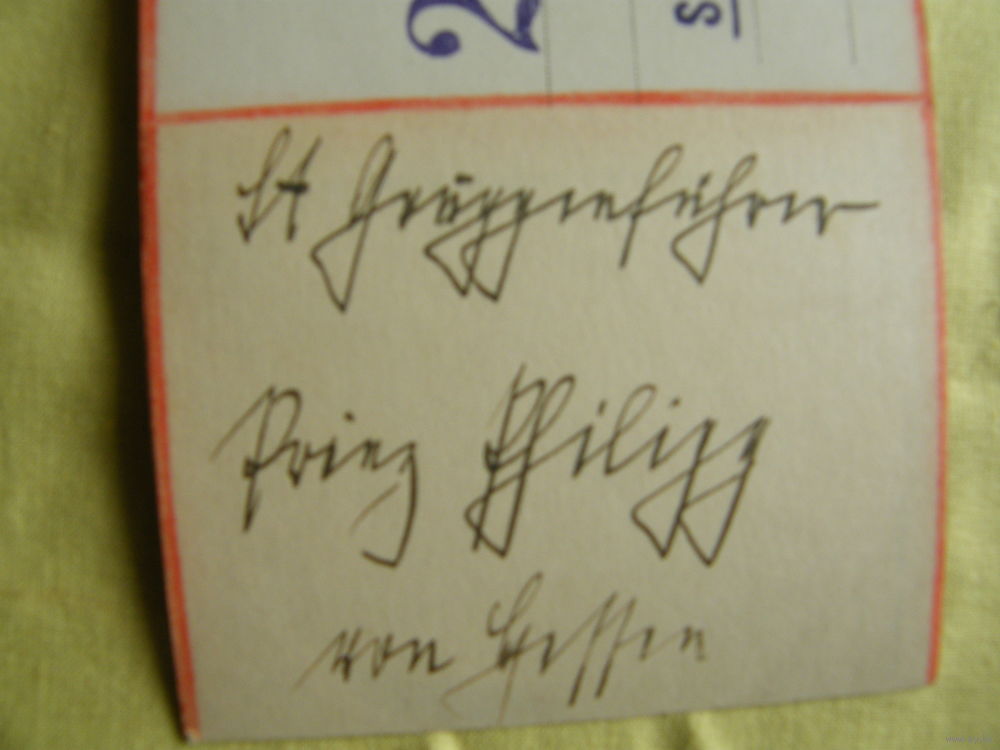 2
s
SA Gruppenführer
Prinz Philipp
von Hessen